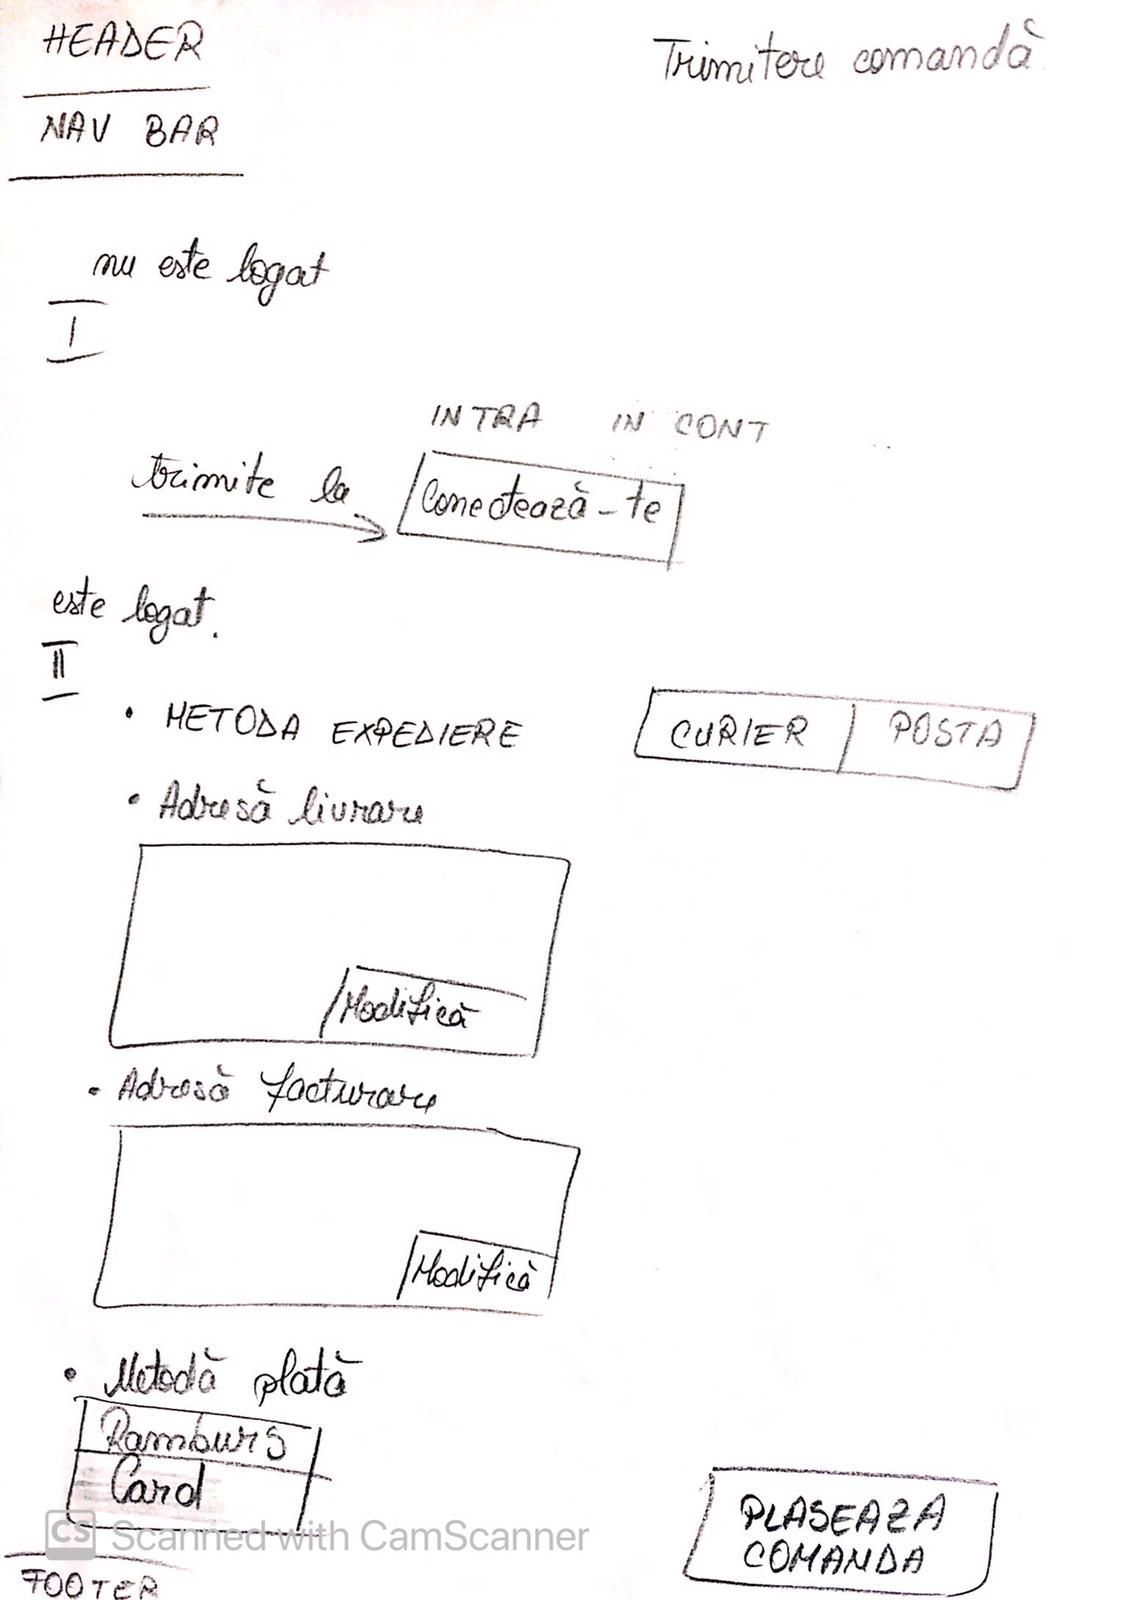 HEADER
Trimitere comandă
NAV BAR
nu este logat
I
INTRA IN CONT
trimite la
Conectează-te
este logat.
II
• METODA EXPEDIERE
CURIER
POSTA
• Adresă livrare
Modifică
• Adresă facturare
Modifică
• Metodă plată
Ramburs
Card
PLASEAZA
COMANDA
CS Scanned with CamScanner
FOOTER